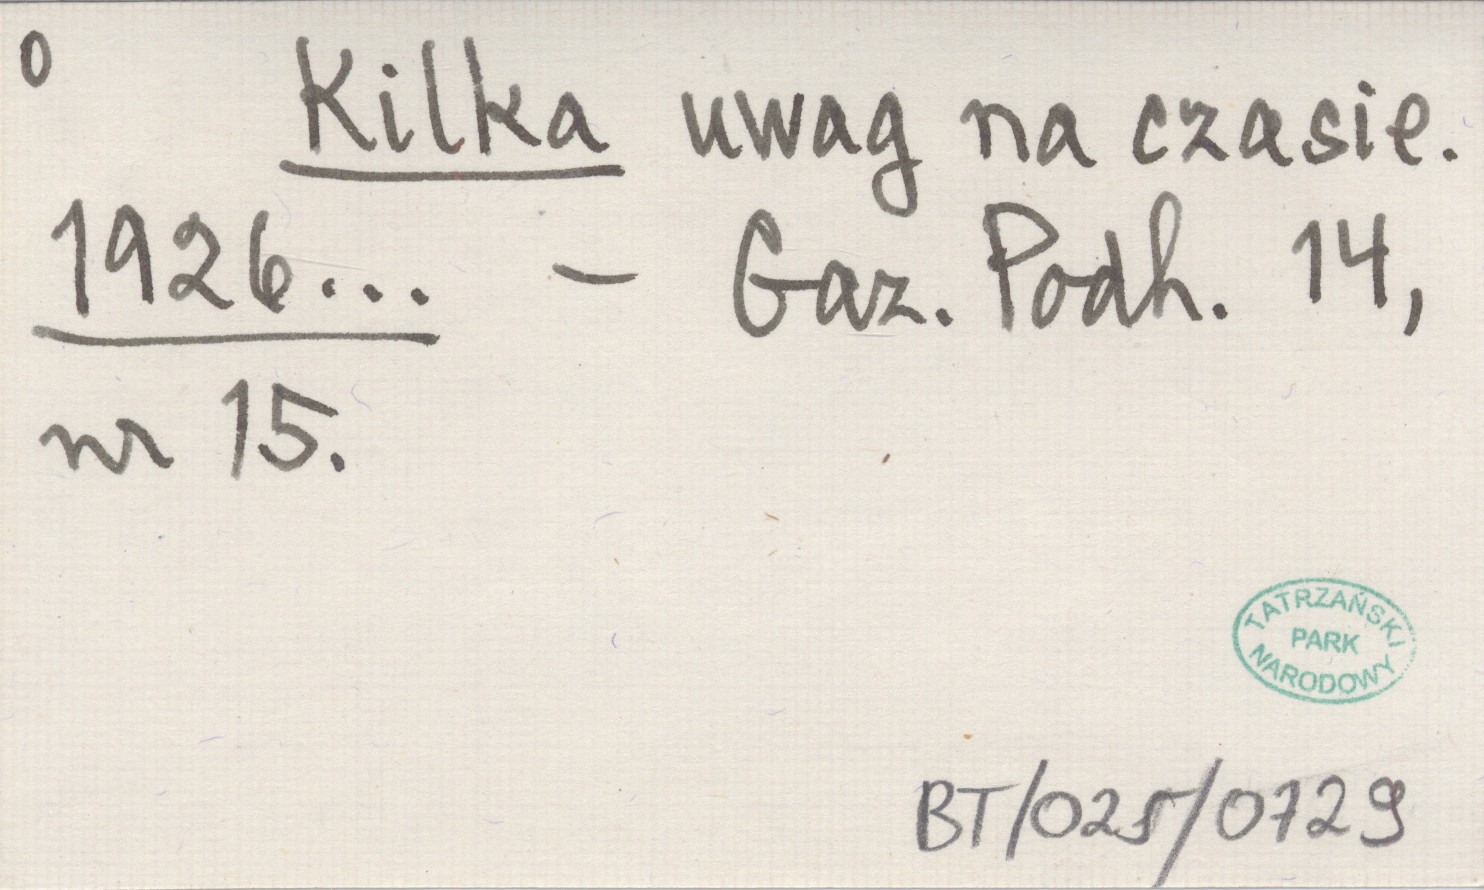 0
Kilka uwag na czasie.
1926... - Gaz. Podh. 14,
nr 15.
TATRZAŃSKI
PARK
NARODOWY
BT/025/0729